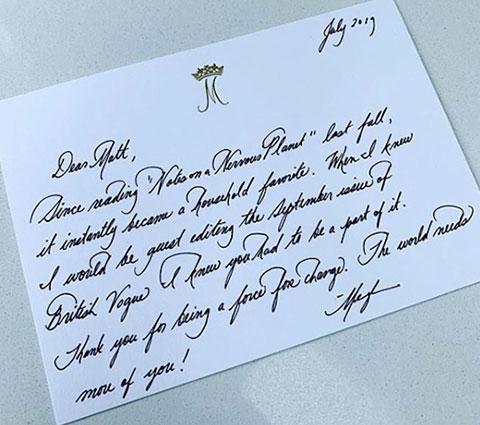 July 2019
M
Dear Matt,
Since reading "Notes on a Nervous Planet" last fall,
it instantly became a household favorite. When I knew
I would be guest editing the September issue of
British Vogue I knew you had to be a part of it.
Thank you for being a force for change. The world needs
more of you!